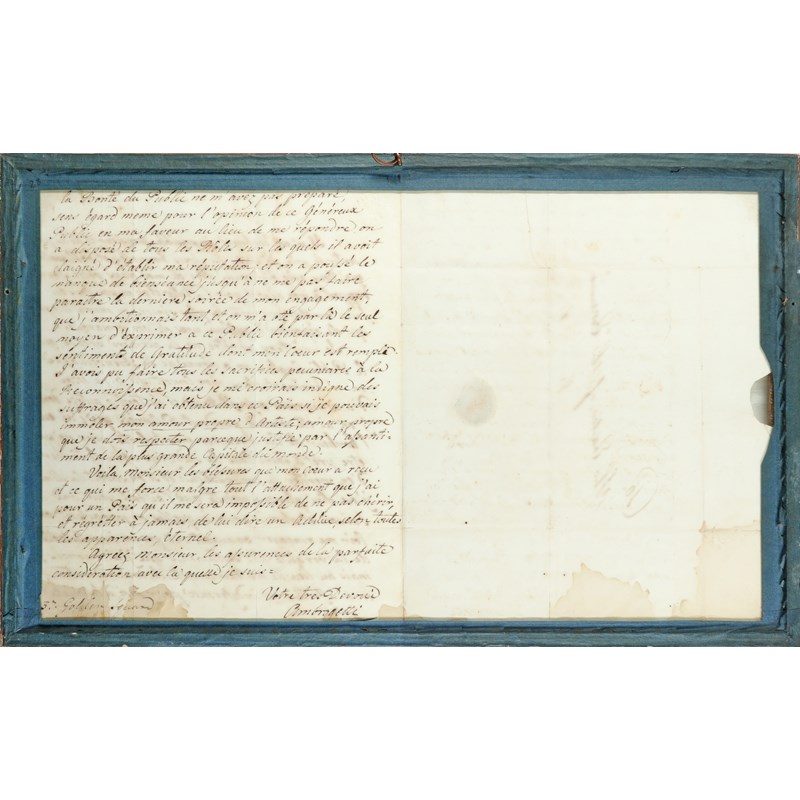 la Bonté du Public ne m'avez pas preparé,
sens égard meme pour l'opinion de ce Généreux
Public en ma faveur au lieu de me répondre, on
a disposé de tous les Rôles sur les quels il avoit
daigné d'établir ma réputation, et on a poussé le
manque de bienséance jusqu'à ne me pas faire
paraitre la dernière soirée de mon engagement,
que j'ambitionnais tant, et on m'a oté par là le seul
moyen d'éxprimer a ce Public bienfaisant les
sentiments de Gratitude dont mon Coeur est remplé.
J'avois pu faire tous les Sacrifices pecuniares à la
Reconnoissence, mais je me croirais indigne des
suffrages que j'ai obtenu dans ce Païs si je pouvais
immoler mon amour propre d'Artiste, amour propre
que je dois respecter parceque justifié par l'assenti-
ment de la plus grande Capitale du monde.
Voilà, Monsieur les blesures que mon Coeur a reçu
et ce qui me force malgre tout l'attachement que j'ai
pour un Païs qu'il me sera impossible de ne pas chérir,
et regréter à jamais de lui dire un Addieu selon toutes
les apparences, éternel.
Agreez Monsieur, les assurences de la parfaite
consideration avec la quelle je suis=
Votre tres Devoué
Ambrogetti
37 Golden Square